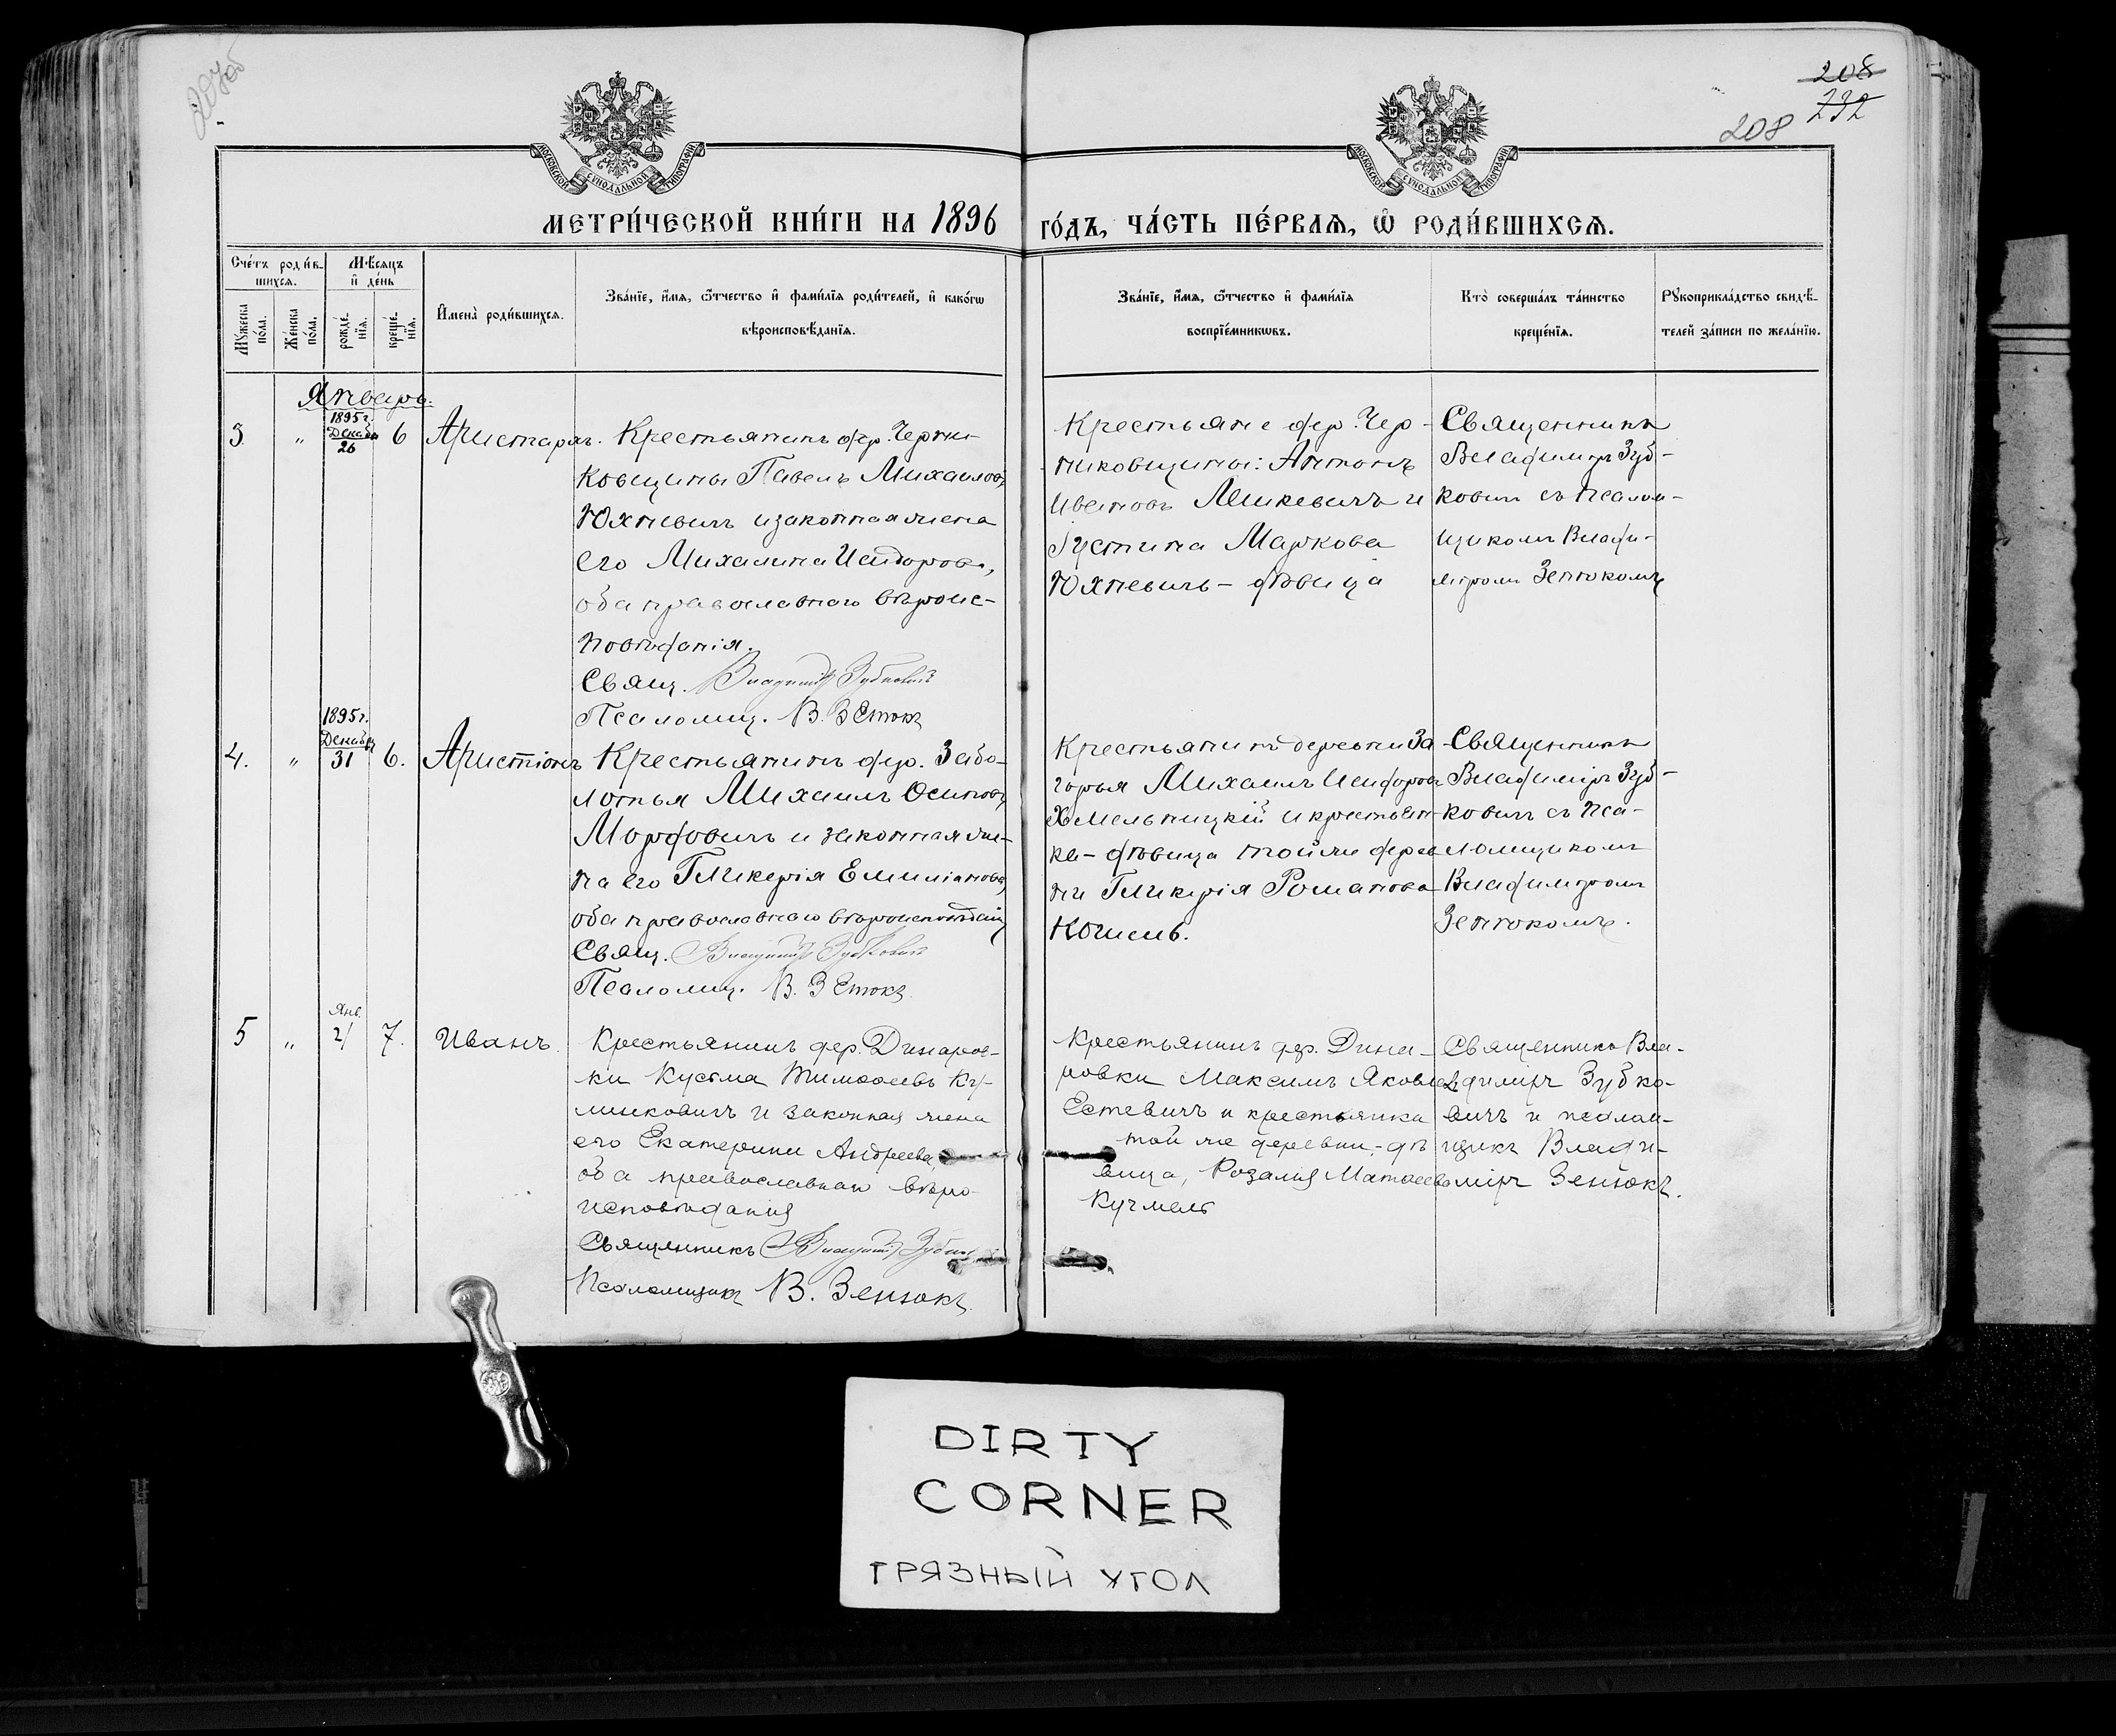 207об
208
232
208
МОСКОВСКОЙ СѴНОДАЛЬНОЙ ТИПОГРАФІИ
МОСКОВСКОЙ СѴНОДАЛЬНОЙ ТИПОГРАФІИ
МЕТРИ́ЧЕСКОЙ КНИ́ГИ НА 1896 ГО́ДЪ, ЧА́СТЬ ПЕ́РВАѦ, Ѡ҆ РОДИ́ВШИХСѦ.
Сче́тъ роди́в-
шихсѧ.
Мꙋ́жеска по́ла.
Же́нска по́ла.
Мѣ́сѧцъ
и҆ де́нь
рожде́-нїѧ.
креще́-нїѧ.
И҆мена̀ роди́вшихсѧ.
Зва́нїе, и҆́мѧ, ѻ҆́тчество и҆ фами́лїѧ роди́телей, и҆ како́гѡ
вѣроисповѣ́данїѧ.
Зва́нїе, и҆́мѧ, ѻ҆́тчество и҆ фами́лїѧ
воспрїе́мникѡвъ.
Кто̀ соверша́лъ та́инство
креще́нїѧ.
Рꙋкоприкла́дство свидѣ́-
телей за́писи по жела́нїю.
Январь.
3.
"
1895 г.
Декабр
26
6
Аристархъ.
Крестьянинъ дер. Черни-
ковщины Павелъ Михаиловъ
Юхневичъ и законная жена
его Михалина Исидорова,
оба православнаго вѣроис-
повѣданія.
Свящ. Владиміръ Зубковичъ
Псаломщ. В. Зенюкъ
Крестьяне дер. Чер-
никовщины: Антонъ
Ивановъ Мишкевичъ и
Іустина Маркова
Юхневичъ - дѣвица
Священникъ
Владиміръ Зуб-
ковичъ съ псалом-
щикомъ Влади-
міромъ Зенюкомъ
4.
"
1895 г.
Декабр
31
6.
Аристіонъ
Крестьянинъ дер. Забо-
лотья Михаилъ Осиповъ
Мордовичъ и законная же-
на его Гликерія Емиліанова,
оба православнаго вѣроисповѣданія
Свящ. Владиміръ Зубковичъ
Псаломщ. В. Зенюкъ
Крестьянинъ деревни За-
горья Михаилъ Исидоровъ
Хмельницкій и крестьян-
ка - дѣвица той же дерев
ни Гликерія Романова
Священникъ
Владиміръ Зуб-
ковичъ съ пса-
ломщикомъ
Владиміромъ
Зенюкомъ.
5
"
Янв.
2
7.
Иванъ.
Крестьянинъ дер. Динаров-
ки Кузьма Тимофеевъ
и законная жена
его Екатерина Андреева,
оба православнаго вѣро-
исповѣданія
Священникъ Владиміръ Зубковичъ
Псаломщикъ В. Зенюкъ.
Крестьянинъ дер. Дина-
ровки Максимъ Яковлевъ
Естевичъ и крестьянка
той же деревни, - дѣ
вица, Розалія Матвеева
Кучмель
Священникъ Вла-
диміръ Зубко-
вичъ и псалом-
щикъ Влади-
міръ Зенюкъ.
DIRTY
CORNER
ГРЯЗНЫЙ УГОЛ